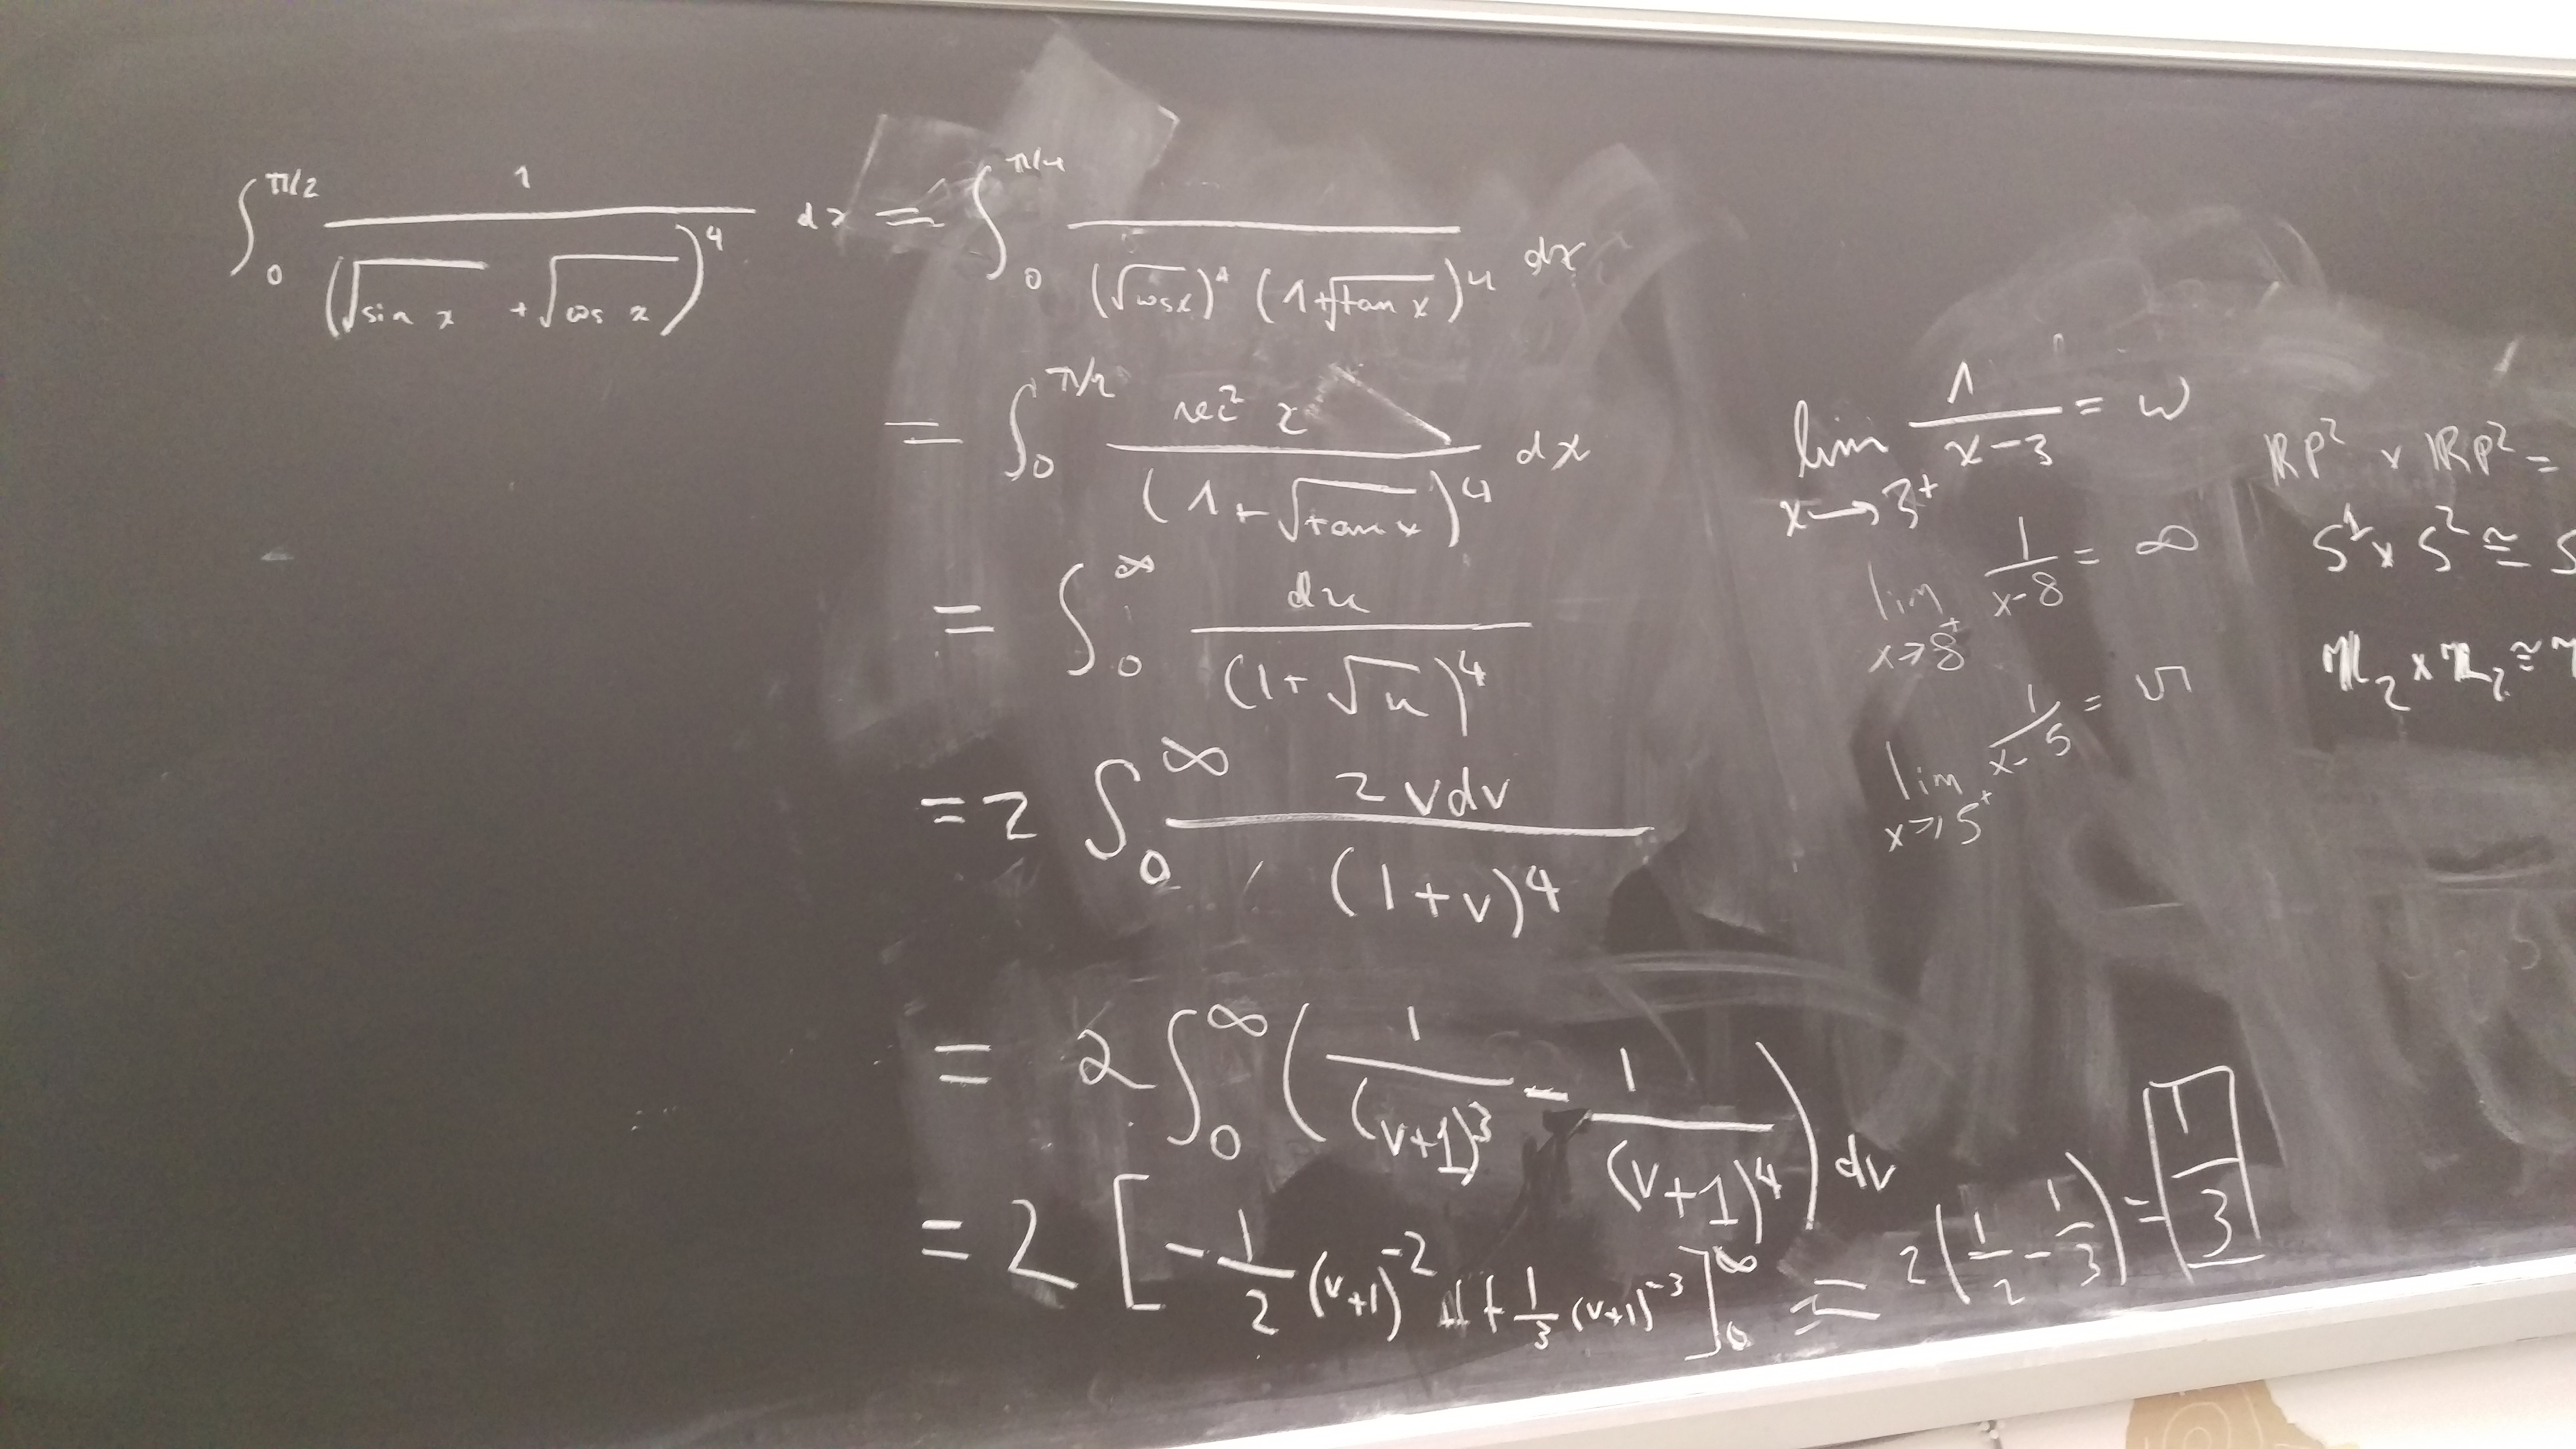 ∫_0^{π/2} 1/(√(sin x) + √(cos x))^4 dx = ∫_0^{π/4} /((√(cos x))^4 (1+√(tan x))^4) dx
= ∫_0^{π/2} sec² x/(1+√(tan x))^4 dx
= ∫_0^∞ du/(1+√u)^4
= 2 ∫_0^∞ 2vdv/(1+v)^4
= 2 ∫_0^∞ (1/(v+1)^3 - 1/(v+1)^4) dv
= 2 [-1/2 (v+1)^{-2} + 1/3 (v+1)^{-3}]_0^∞ = 2(1/2 - 1/3) = 1/3
lim_{x→3^+} 1/(x-3) = ω
lim_{x→8^+} 1/(x-8) = ∞
lim_{x→5^+} 1/(x-5) = 5
ℝP² × ℝP² =
S^1 × S^2 ≅ S